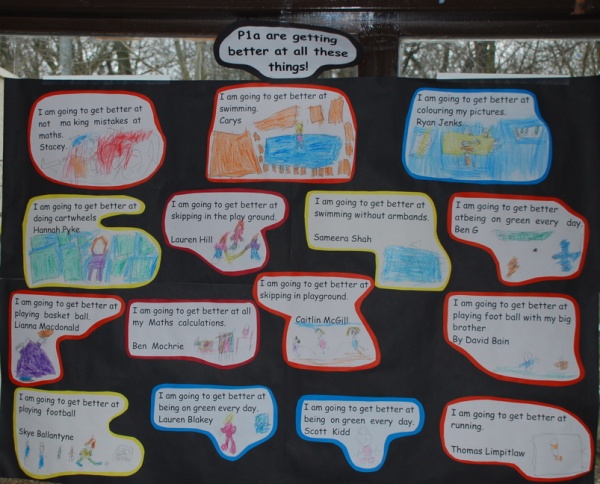 P1a are getting
better at all these
things!
I am going to get better at
not ma king mistakes at
maths.
Stacey.
I am going to get better at
swimming.
Carys
I am going to get better at
colouring my pictures.
Ryan Jenks
I am going to get better at
doing cartwheels
Hannah Pyke
I am going to get better at
skipping in the play ground.
Lauren Hill
I am going to get better at
swimming without armbands.
Sameera Shah
I am going to get better
atbeing on green every day.
Ben G
I am going to get better at
playing basket ball.
Lianna Macdonald
I am going to get better at all
my Maths calculations.
Ben Mochrie
I am going to get better at
skipping in playground.
Caitlin McGill
I am going to get better at
playing foot ball with my big
brother
By David Bain
I am going to get better at
playing football
Skye Ballantyne
I am going to get better at
being on green every day.
Lauren Blakey
I am going to get better at
being on green every day.
Scott Kidd
I am going to get better at
running.
Thomas Limpitlaw